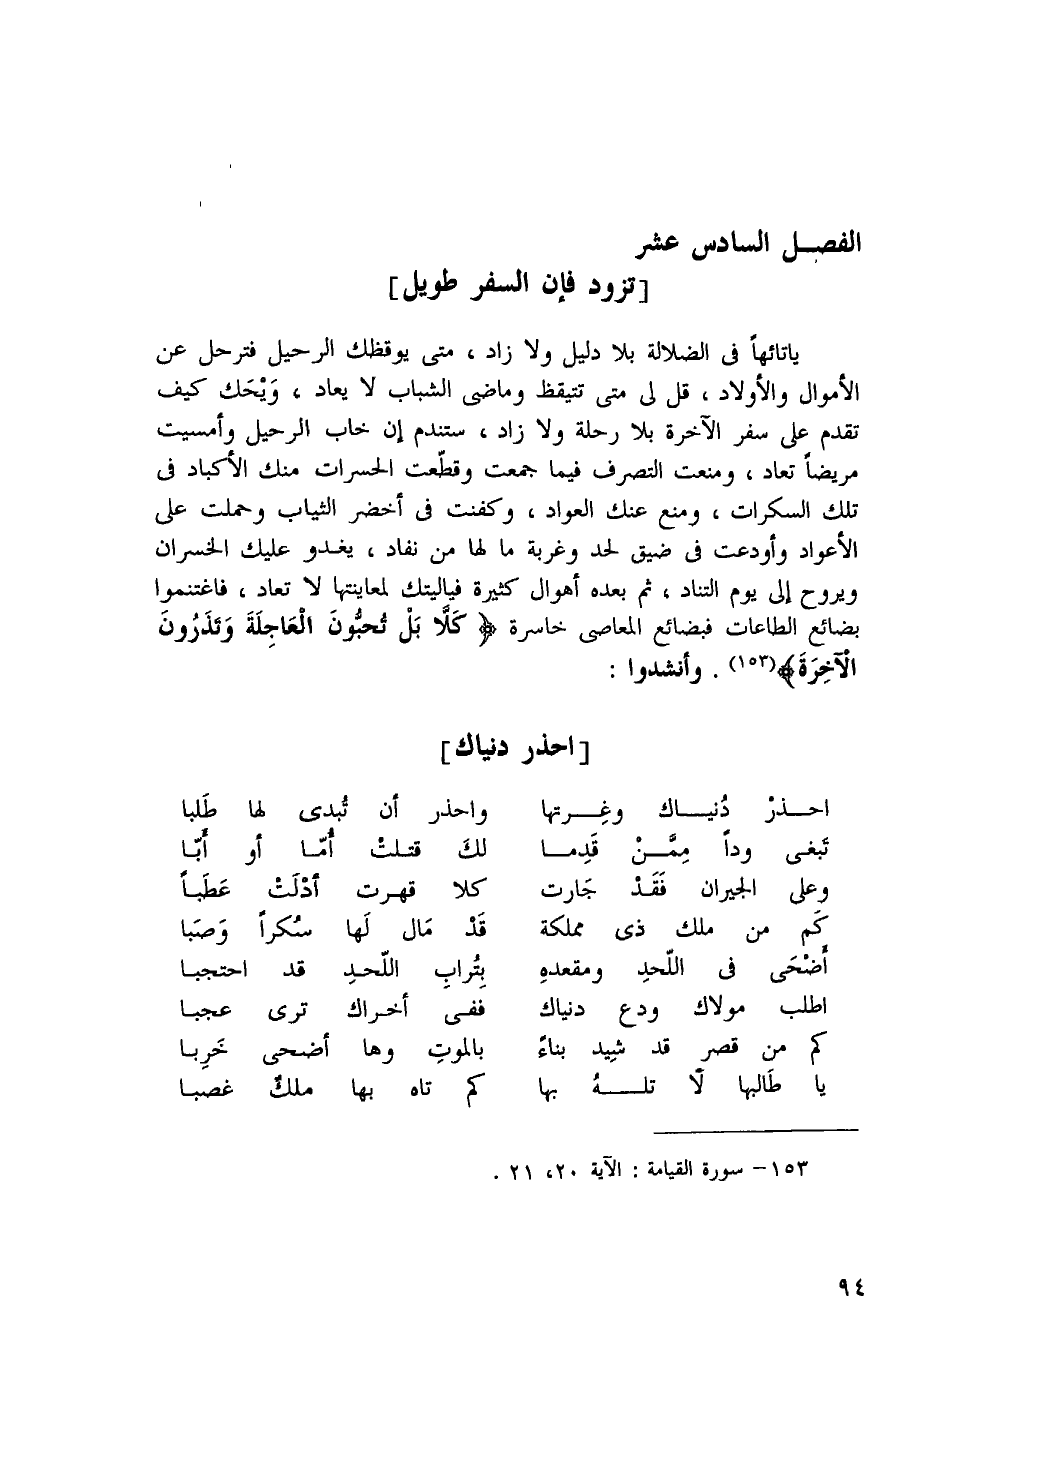 الفصل السادس عشر
[تزود فإن السفر طويل]
ياتائهاً فى الضلالة بلا دليل ولا زاد ، متى يوقظك الرحيل فترحل عن
الأموال والأولاد ، قل لى متى تتيقظ وماضى الشباب لا يعاد ، وَيْحَك كيف
تقدم على سفر الآخرة بلا رحلة ولا زاد ، ستندم إن خاب الرحيل وأمسيت
مريضاً تعاد ، ومنعت التصرف فيما جمعت وقطّعت الحسرات منك الأكباد فى
تلك السكرات ، ومنع عنك العواد ، وكفنت فى أخضر الثياب وحملت على
الأعواد وأودعت فى ضيق لحد وغربة ما لها من نفاد ، يغدو عليك الخسران
ويروح إلى يوم التناد ، ثم بعده أهوال كثيرة فياليتك لمعاينتها لا تعاد ، فاغتنموا
بضائع الطاعات فبضائع المعاصى خاسرة ﴿ كَلَّا بَلْ تُحبُّونَ الْعَاجِلَةَ وَتَذَرُونَ
الْآخِرَةَ﴾(١٥٣) . وأنشدوا :
[احذر دنياك]
احـــذرْ دُنيـــاك وغِـــرتها واحذر أن تُبدى لها طَلبا
تَبغى وداً مِمَّـــنْ قَدِمـــا لكَ قتلتْ أُمّا أو أَبّا
وعلى الجيران فَقَدْ جَارت كلا قهرت أدْلَتْ عَطَباً
كَم من ملك ذى مملكة قَدْ مَال لَها سُكراً وَصَبا
أَضْحَى فى اللّحدِ ومقعدهِ بِتُرابِ اللّحدِ قد احتجبا
اطلب مولاك ودع دنياك ففى أخراك ترى عجبا
كم من قصر قد شيد بناءً بالموتِ وها أضحى خَرِبا
يا طَالبها لَا تلـــهُ بها كم تاه بها ملكٌ غصبا
١٥٣– سورة القيامة : الآية ٢٠، ٢١ .
٩٤